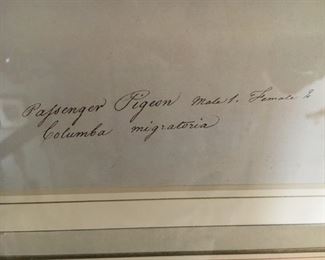 Paſsenger Pigeon Male 1. Female 2
Columba migratoria